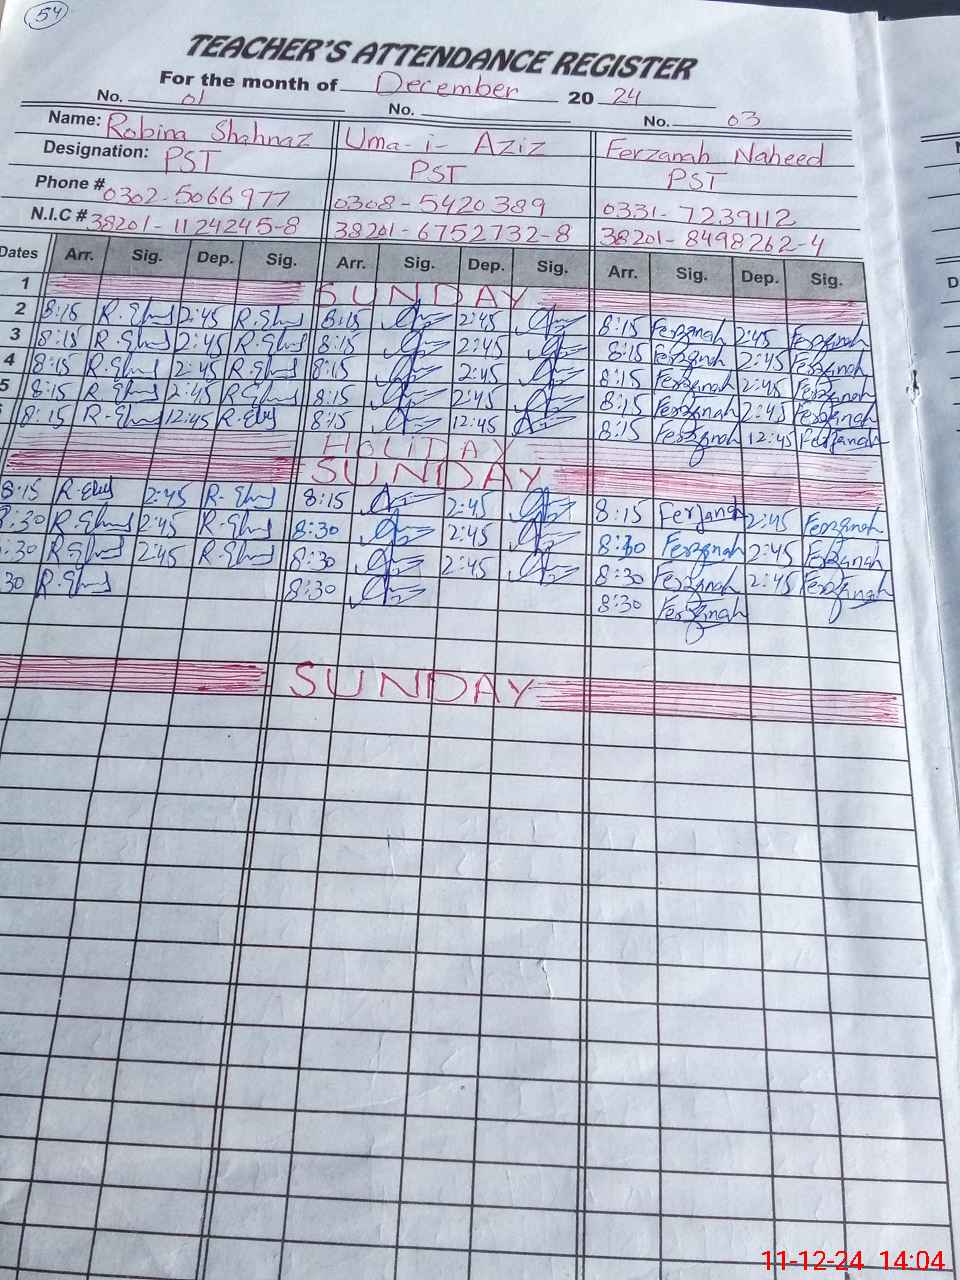 54
TEACHER'S ATTENDANCE REGISTER
For the month of December 2024
No. 01 No. No. 03
Name: Robina Shahnaz Uma-i- Aziz Ferzanah Naheed
Designation: PST PST PST
Phone # 0302-5066977 0308-5420389 0331-7239112
N.I.C # 38201-1124245-8 38201-6752732-8 38201-8498262-4
Dates Arr. Sig. Dep. Sig. Arr. Sig. Dep. Sig. Arr. Sig. Dep. Sig.
1 SUNDAY
2 8:15 2:45 8:15 2:45 8:15 Ferzanah 2:45 Ferzanah
3 8:15 2:45 8:15 2:45 8:15 Ferzanah 2:45 Ferzanah
4 8:15 2:45 8:15 2:45 8:15 Ferzanah 2:45 Ferzanah
5 8:15 2:45 8:15 2:45 8:15 Ferzanah 2:45 Ferzanah
8:15 12:45 8:15 12:45 8:15 Ferzanah 12:45 Ferzanah
HOLIDAY
SUNDAY
8:15 2:45 8:15 2:45 8:15 Ferzanah 2:45 Ferzanah
8:30 2:45 8:30 2:45 8:30 Ferzanah 2:45 Ferzanah
:30 2:45 8:30 2:45 8:30 Ferzanah 2:45 Ferzanah
30 8:30 8:30 Ferzanah
SUNDAY
11-12-24 14:04